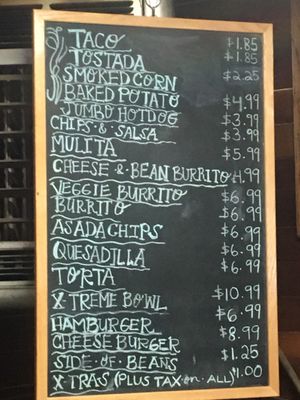 TACO $1.85
TOSTADA $1.85
SMOKED CORN $2.25
BAKED POTATO $4.99
JUMBO HOTDOG $3.99
CHIPS & SALSA $3.99
MULITA $5.99
CHEESE & BEAN BURRITO 4.99
VEGGIE BURRITO $6.99
BURRITO $6.99
ASADA CHIPS $6.99
QUESADILLA $6.99
TORTA $6.99
X-TREME BOWL $10.99
HAMBURGER $6.99
CHEESE BURGER $8.99
SIDE-OF-BEANS $1.25
X-TRAS (PLUS TAX-on-ALL) $1.00